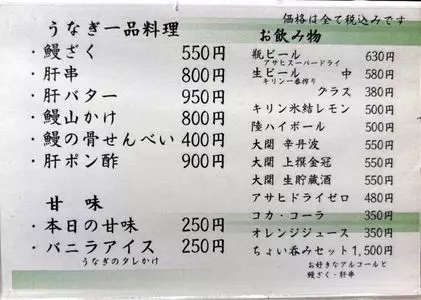 うなぎ一品料理
・鰻ざく 550円
・肝串 800円
・肝バター 950円
・鰻山かけ 800円
・鰻の骨せんべい 400円
・肝ポン酢 900円
甘味
・本日の甘味 250円
・バニラアイス 250円
うなぎのタレかけ
価格は全て税込みです
お飲み物
瓶ビール 630円
アサヒスーパードライ
生ビール 中 580円
キリン一番搾り
グラス 380円
キリン氷結レモン 500円
陸ハイボール 500円
大関 辛丹波 550円
大関 上撰金冠 550円
大関 生貯蔵酒 550円
アサヒドライゼロ 480円
コカ・コーラ 350円
オレンジジュース 350円
ちょい呑みセット 1,500円
お好きなアルコールと
鰻ざく・肝串